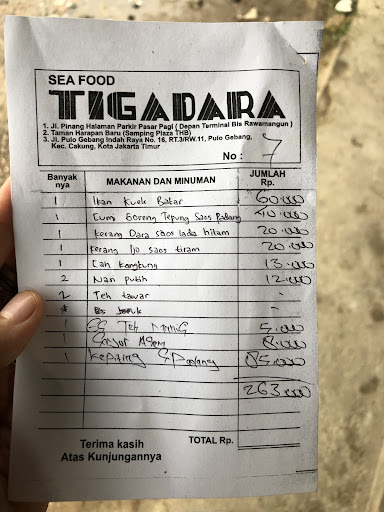 SEA FOOD
TIGADARA
1. Jl. Pinang Halaman Parkir Pasar Pagi ( Depan Terminal Bis Rawamangun )
2. Taman Harapan Baru (Samping Plaza THB)
3. Jl. Pulo Gebang Indah Raya No. 16, RT.3/RW.11, Pulo Gebang,
Kec. Cakung, Kota Jakarta Timur
No : 7
Banyak nya MAKANAN DAN MINUMAN JUMLAH Rp.
1 Ikan Kuek Bakar 60.000
1 Cumi Goreng Tepung Saos Padang 40.000
1 Kerang Dara saos lada hitam 20.000
1 Kerang Ijo saos tiram 20.000
1 Cah Kangkung 13.000
2 Nasi putih 12.000
2 Teh tawar -
Es -
1 ES Teh MANIS 5.000
1 Sayur Asem 8.000
1 Kepiting S Padang 85.000
263.000
TOTAL Rp.
Terima kasih
Atas Kunjungannya